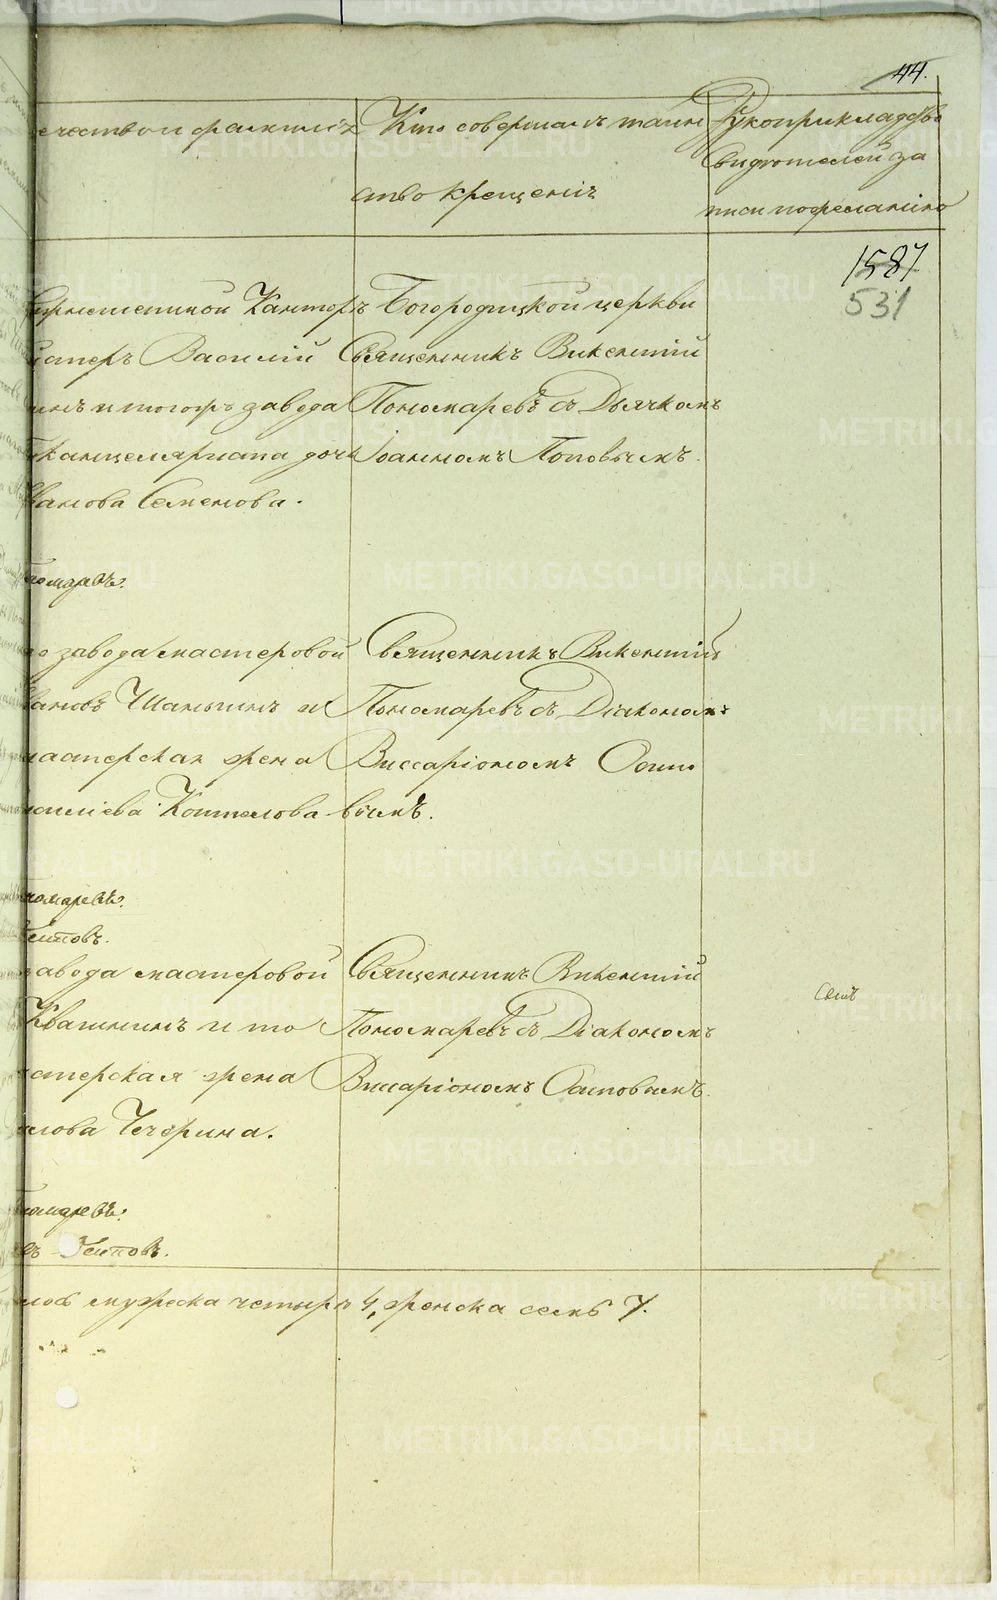 44.
ечество и фамилія
Кто совершалъ таин
ство крещенія
Рукоприкладство
свидѣтелей за
писи по желанію
1587
531
Канторѣ
Василій
и тогожъ завода
дочь
Иванова Семенова.
Богородицкой церкви
Священникъ Викентій
Пономаревъ съ Дьячкомъ
Іоанномъ Поповымъ.
номаревъ.
завода мастеровой
Ивановъ Шаньгинъ и
мастерская жена
Коптелова
Священникъ Викентій
Пономаревъ съ Діакономъ
Виссаріономъ Осипо
вымъ.
номаревъ.
сиповъ.
завода мастеровой
Квашнинъ и то
стерская жена
лова Чечерина.
Священникъ Викентій
Пономаревъ съ Діакономъ
Виссаріономъ Осиповымъ.
номаревъ.
Осиповъ.
лось мужеска четыре 4, женска семь 7.
METRIKI.GASO-URAL.RU